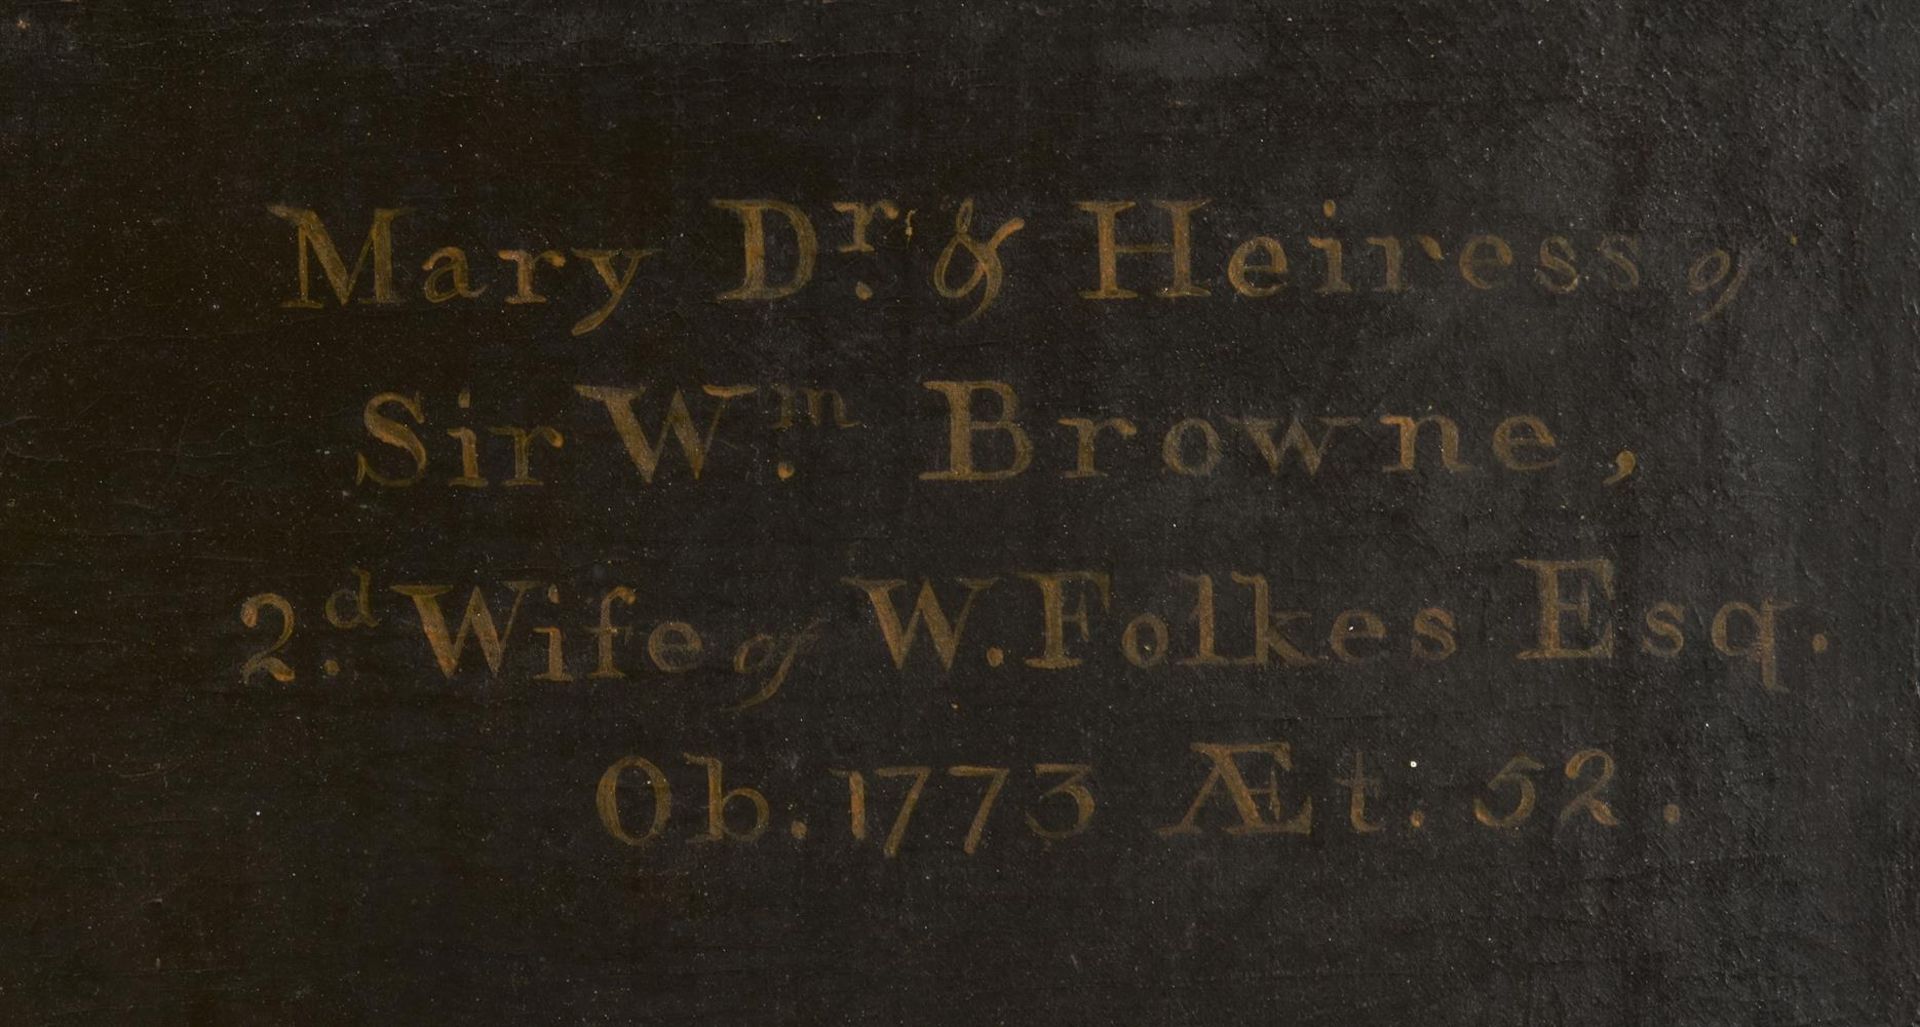 Mary Dr. & Heiress of
Sir Wm. Browne,
2.d Wife of W. Folkes Esq.
Ob. 1773 Æt. 52.